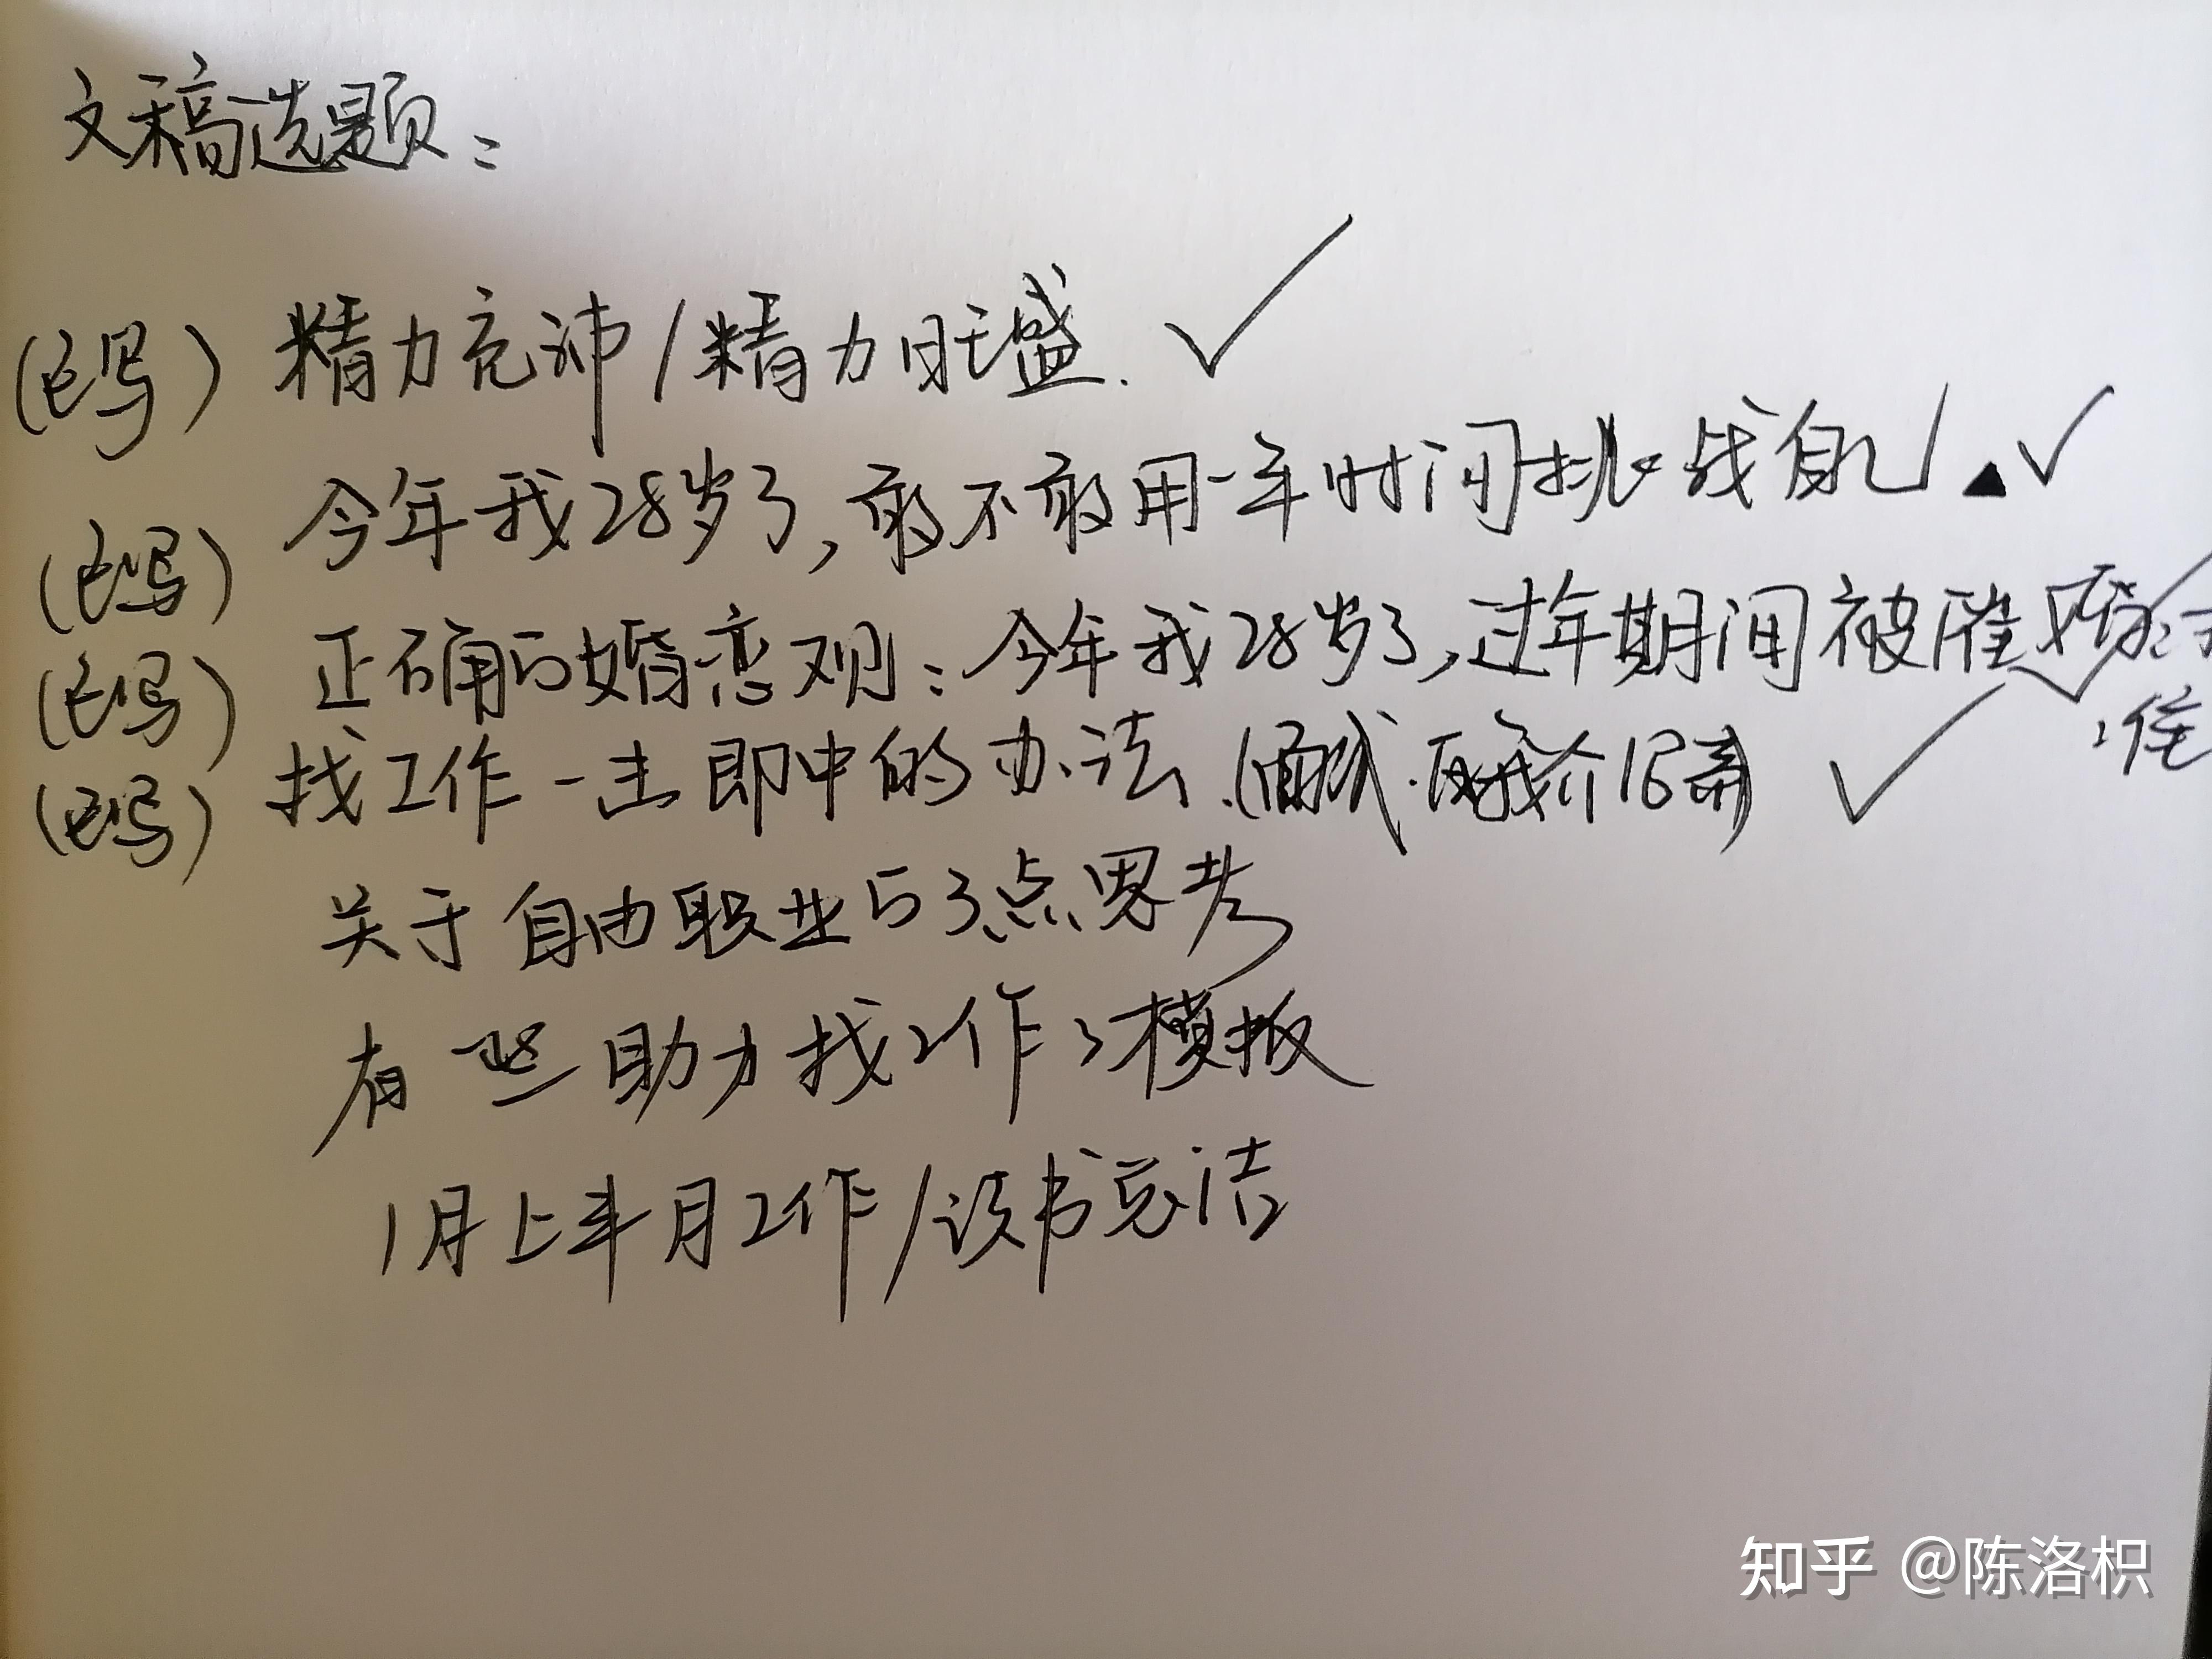 文稿选题:
(已写) 精力充沛/精力旺盛. ✓
(已写) 今年我28岁了,敢不敢用一年时间挑战自己 ▲ ✓
(已写) 正确的婚恋观:今年我28岁了,过年期间被催婚
(已写) 找工作一击即中的办法.(面试.自我介绍 ✓
关于自由职业的3点思考
有些助力找工作的模板
1月上半月工作/读书总结
知乎 @陈洛枳